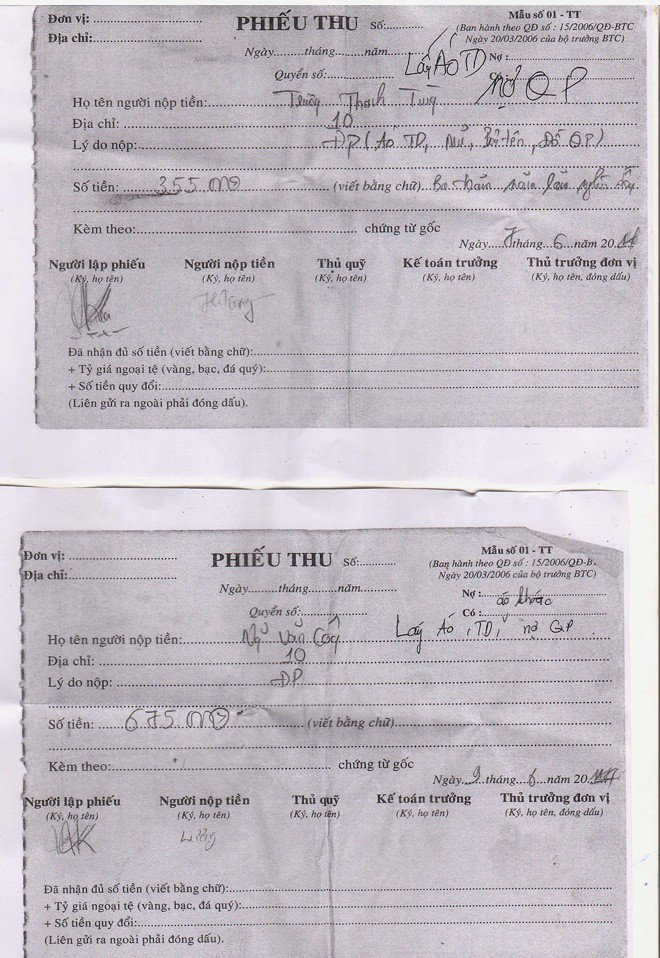 Đơn vị:
PHIẾU THU Số:
Mẫu số 01 - TT
Địa chỉ:
(Ban hành theo QĐ số : 15/2006/QĐ-BTC
Ngày 20/03/2006 của bộ trưởng BTC)
Ngày......tháng......năm......
Lấy Áo TD
Nợ :
Quyển số:
nợ QP
Họ tên người nộp tiền: Thanh Tùng
Địa chỉ: 10
Lý do nộp: ĐP (Áo TD, Mũ, Bả tên, Đồ QP)
Số tiền: 355 000 (viết bằng chữ) Ba trăm năm lăm nghìn
Kèm theo: chứng từ gốc
Ngày 7 tháng 6 năm 20
Người lập phiếu Người nộp tiền Thủ quỹ Kế toán trưởng Thủ trưởng đơn vị
(Ký, họ tên) (Ký, họ tên) (Ký, họ tên) (Ký, họ tên) (Ký, họ tên, đóng dấu)
Đã nhận đủ số tiền (viết bằng chữ):
+ Tỷ giá ngoại tệ (vàng, bạc, đá quý):
+ Số tiền quy đổi:
(Liên gửi ra ngoài phải đóng dấu).
Đơn vị:
PHIẾU THU Số:
Mẫu số 01 - TT
Địa chỉ:
(Ban hành theo QĐ số : 15/2006/QĐ-B
Ngày 20/03/2006 của bộ trưởng BTC)
Ngày......tháng......năm......
Nợ : áo khoác
Quyển số:
Có :
Họ tên người nộp tiền: Văn Lấy Áo, TD, nợ QP
Địa chỉ: 10
Lý do nộp: ĐP
Số tiền: 675 000 (viết bằng chữ)
Kèm theo: chứng từ gốc
Ngày 9 tháng 6 năm 20
Người lập phiếu Người nộp tiền Thủ quỹ Kế toán trưởng Thủ trưởng đơn vị
(Ký, họ tên) (Ký, họ tên) (Ký, họ tên) (Ký, họ tên) (Ký, họ tên, đóng dấu)
Đã nhận đủ số tiền (viết bằng chữ):
+ Tỷ giá ngoại tệ (vàng, bạc, đá quý):
+ Số tiền quy đổi:
(Liên gửi ra ngoài phải đóng dấu).